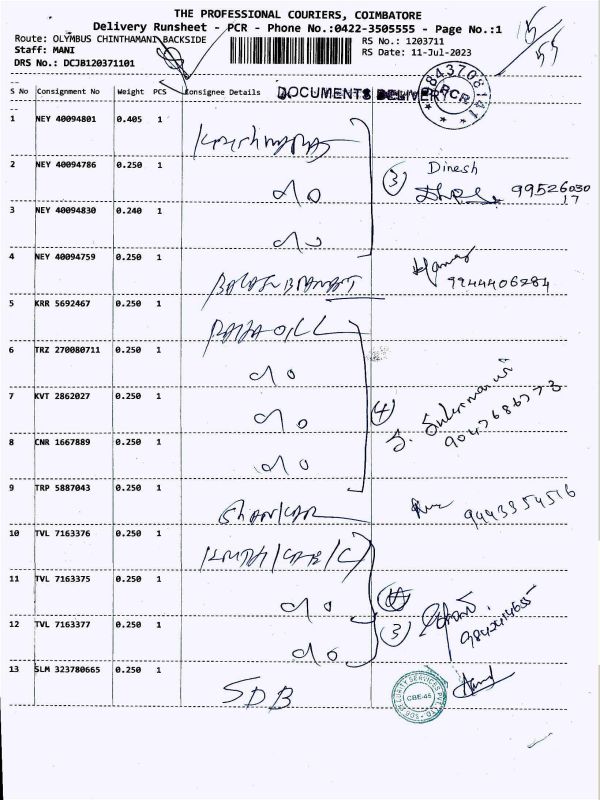 THE PROFESSIONAL COURIERS, COIMBATORE
Delivery Runsheet - PCR - Phone No.:0422-3505555 - Page No.:1
15/55
Route: OLYMBUS CHINTHAMANI BACKSIDE
RS No.: 1203711
Staff: MANI
RS Date: 11-Jul-2023
DRS No.: DCJB120371101
S No Consignment No Weight PCS Consignee Details DOCUMENTS DELIVERY
9843708141
PCR
1 NEY 40094801 0.405 1
2 NEY 40094786 0.250 1
do
(3) Dinesh
99526030
17
3 NEY 40094830 0.240 1
do
4 NEY 40094759 0.250 1
9944406284
5 KRR 5692467 0.250 1
RAJA OILL
6 TRZ 270080711 0.250 1
do
7 KVT 2862027 0.250 1
do
(4)
S. Sukumari
9047686773
8 CNR 1667889 0.250 1
do
9 TRP 5887043 0.250 1
Shankar
9443354516
10 TVL 7163376 0.250 1
11 TVL 7163375 0.250 1
do
12 TVL 7163377 0.250 1
do
(3)
13 SLM 323780665 0.250 1
SDB
CBE-45